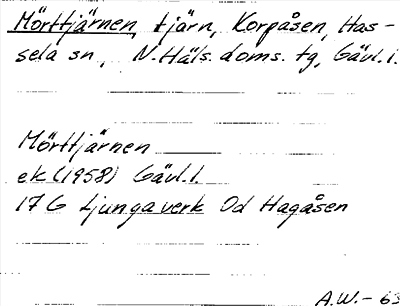 Mörttjärnen, tjärn, Korpåsen, Has-
sela sn, N.Häls. doms. tg, Gävl. l.
Mörttjärnen
ek (1958) Gävl. l.
17 G Ljungaverk Od Hagåsen
A.W. - 63